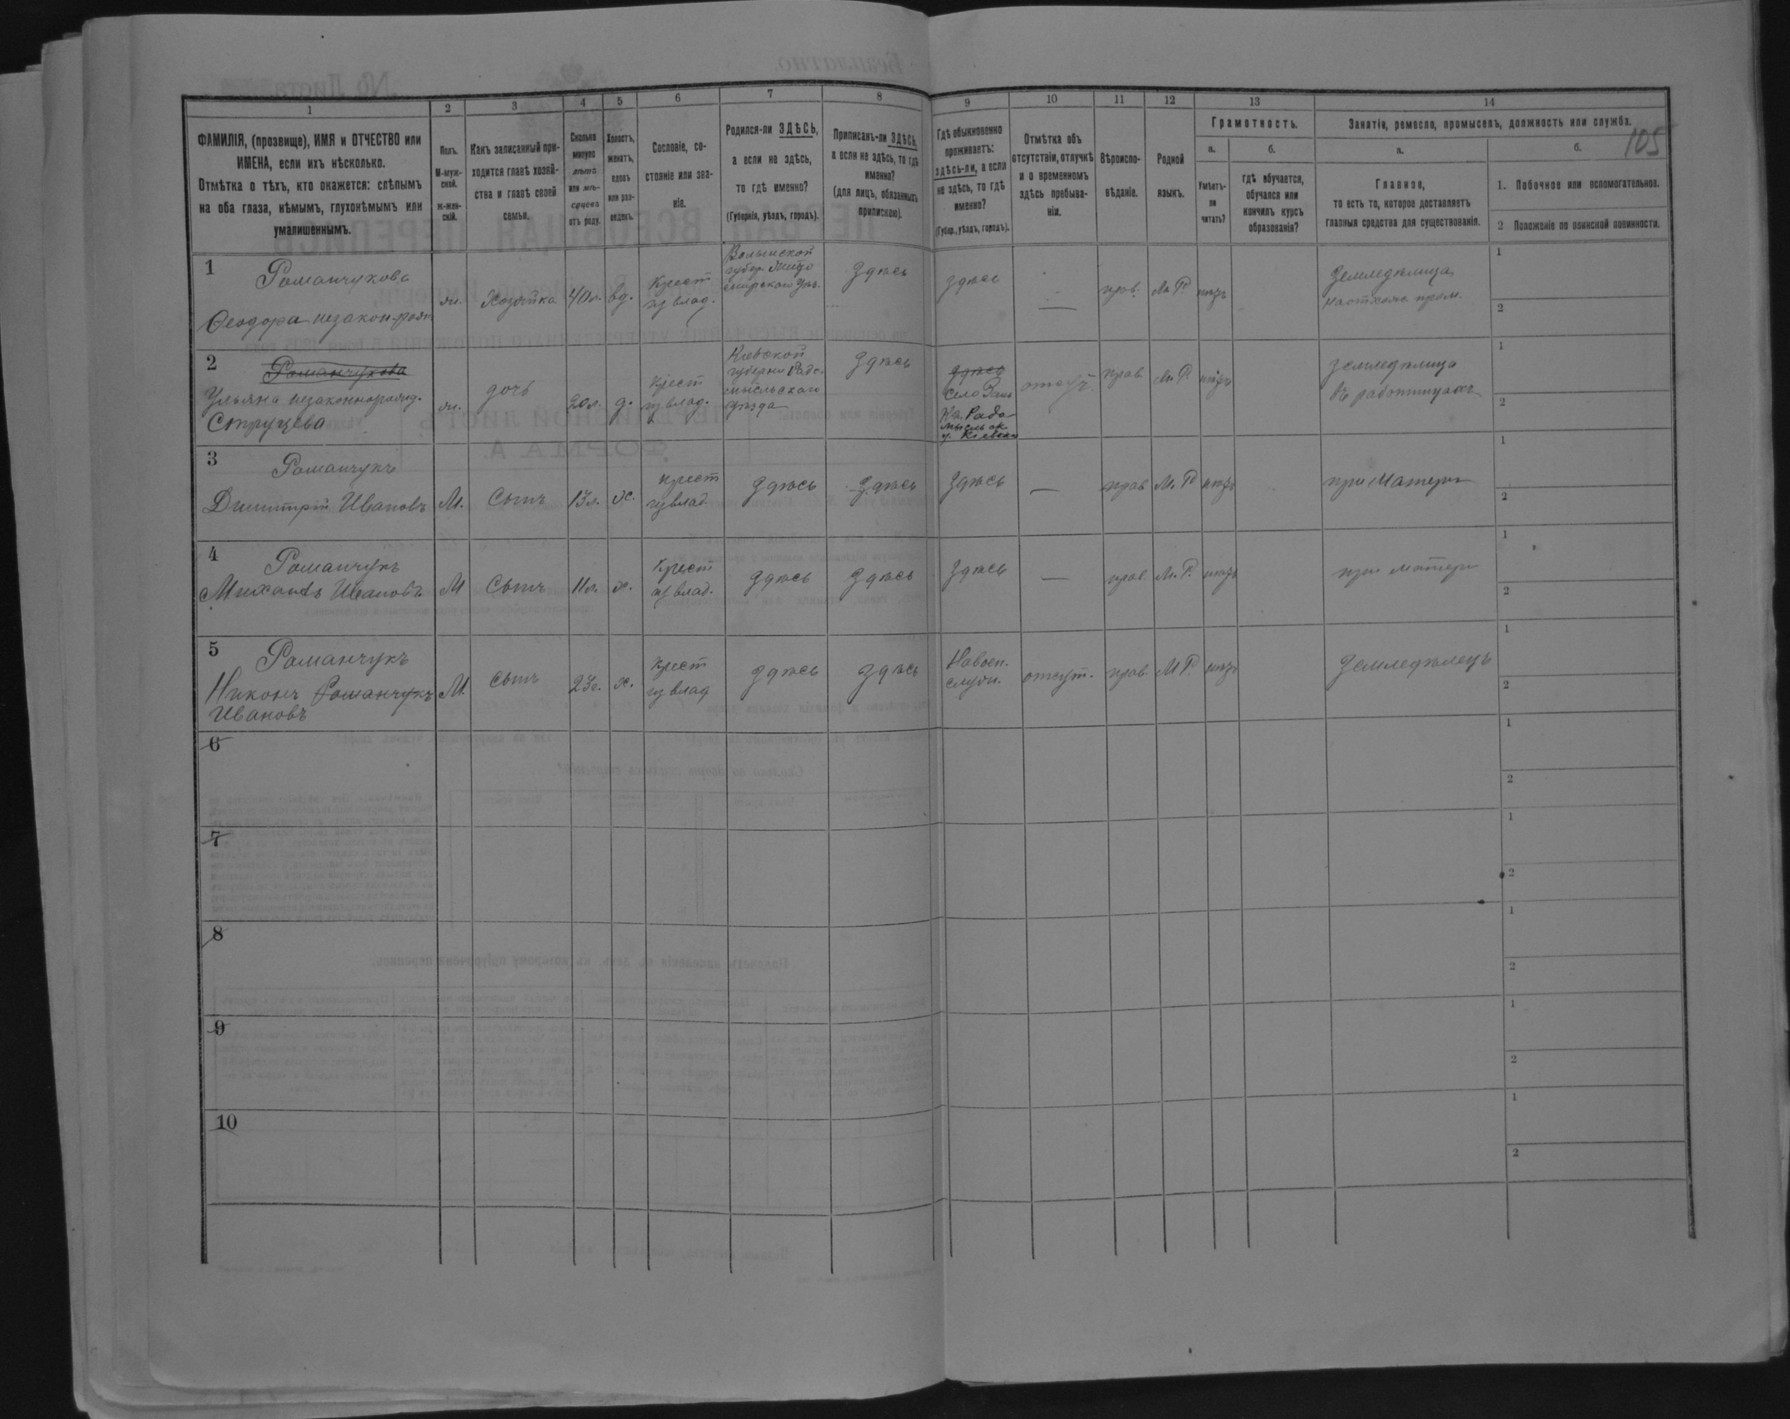 105
1 2 3 4 5 6 7 8 9 10 11 12 13 14
ФАМИЛІЯ, (прозвище), ИМЯ и ОТЧЕСТВО или
ИМЕНА, если ихъ нѣсколько.
Отмѣтка о тѣхъ, кто окажется: слѣпымъ
на оба глаза, нѣмымъ, глухонѣмымъ или
умалишеннымъ.
Полъ.
М-муж-
ской.
ж-жен-
скій.
Какъ записанный при-
ходится главѣ хозяй-
ства и главѣ своей
семьи.
Сколько
минуло
лѣтъ
или мѣ-
сяцевъ
отъ роду.
Холостъ,
женатъ,
вдовъ
или раз-
веденъ.
Сословіе, со-
стояніе или зва-
ніе.
Родился-ли ЗДѢСЬ,
а если не здѣсь,
то гдѣ именно?
(Губернія, уѣздъ, городъ).
Приписанъ-ли ЗДѢСЬ,
а если не здѣсь, то гдѣ
именно?
(для лицъ, обязанныхъ
припискою).
Гдѣ обыкновенно
проживаетъ:
здѣсь-ли, а если
не здѣсь, то гдѣ
именно?
(Губер., уѣздъ, городъ).
Отмѣтка объ
отсутствіи, отлучкѣ
и о временномъ
здѣсь пребыва-
ніи.
Вѣроиспо-
вѣданіе.
Родной
языкъ.
Грамотность.
а.
Умѣетъ-
ли
читать?
б.
гдѣ обучается,
обучался или
кончилъ курсъ
образованія?
Занятіе, ремесло, промыселъ, должность или служба.
а.
Главное,
то есть то, которое доставляетъ
главныя средства для существованія.
б.
1. Побочное или вспомогательное.
2 Положеніе по воинской повинности.
1
Романчукова
Феодора незакон-рожд
ж. Хозяйка 40 л. вд.
Крест
из влад.
Волынской
губер.
здѣсь
здѣсь
—
прав. М. Р. нѣтъ
Земледѣлица
1
2
2
Романчукова
Ульяна незаконнорожд.
Струцева
ж. дочь 20 л. д.
Крест
из влад.
Кіевской
губерніи Радо-
мысльскаго
уѣзда
здѣсь
здѣсь
село
отсут.
прав. М. Р. нѣтъ
земледѣлица
въ работницахъ
1
2
3
Романчукъ
Димитрій Ивановъ
М. Сынъ 13 л. х.
Крест
из влад.
здѣсь здѣсь здѣсь — прав М. Р нѣтъ при матери
1
2
4
Романчукъ
Михаилъ Ивановъ
М Сынъ 11 л. х.
Крест
из влад.
здѣсь здѣсь здѣсь — прав. М. Р. нѣтъ при матери
1
2
5
Романчукъ
Никонъ Романчукъ
Ивановъ
М. сынъ 23 г. х.
Крест
из влад
здѣсь здѣсь
отсут. прав. М Р. нѣтъ
Земледѣлецъ
1
2
6
1
2
7
1
2
8
1
2
9
1
2
10
1
2